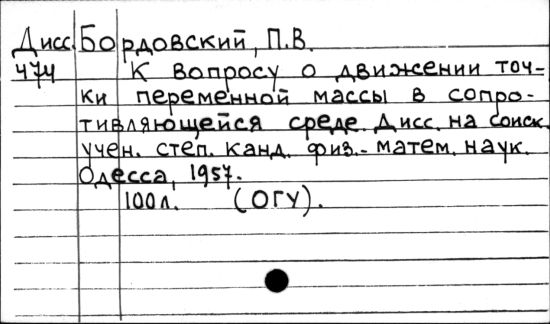 Дисс. Бордовский, П.В.
474 К вопросу о движении точ-
ки переменной массы в сопро-
тивляющейся среде. Дисс. на соиск.
учен. степ. канд. физ.-матем. наук.
Одесса, 1957.
100л. (ОГУ).